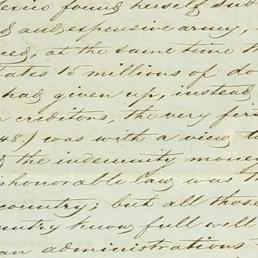 exico found herself sub
d and expensive army,
eed, at the same time th
tates 15 millions of do
had given up, instead
creditors, the very firs
48) was with a view to
g the indemnity money
ishonorable law was th
country; but all those
untry know full well
an administrations